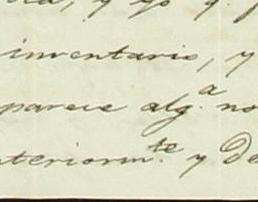 y yo q.
imventario, y
parece alg.ª no
nteriorm.te y de